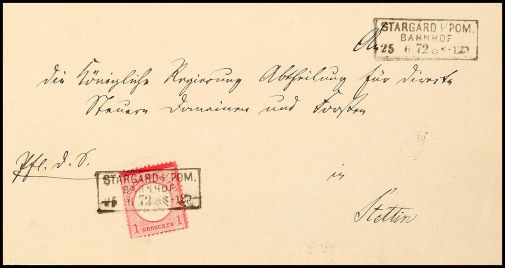 STARGARD i/POM.
BAHNHOF
25 6 72
An
die Königliche Regierung Abtheilung für directe
Steuern Domainen und Forsten
Pfl. d. S.
in
Stettin
STARGARD i/POM.
BAHNHOF
25 6 72
1 GROSCHEN 1